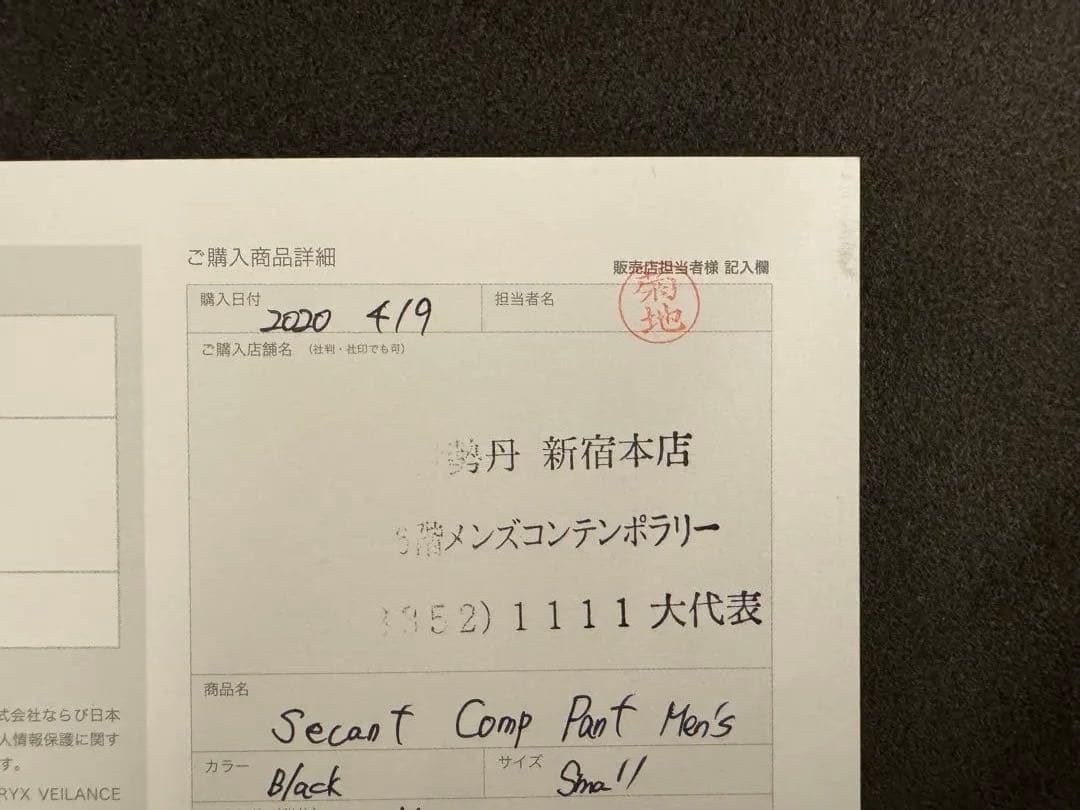 ご購入商品詳細
販売店担当者様 記入欄
購入日付
2020 4/9
担当者名
菊地
ご購入店舗名 (社判・社印でも可)
勢丹 新宿本店
階メンズコンテンポラリー
352) 1111 大代表
商品名
Secant Comp Pant Men's
カラー
Black
サイズ
Small
式会社ならび日本
人情報保護に関す
す。
RYX VEILANCE